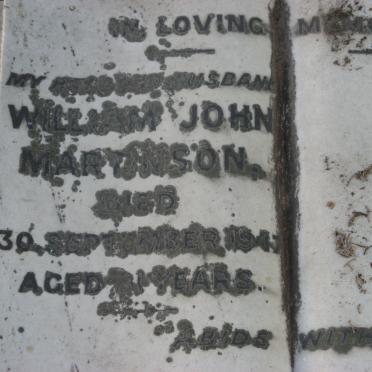 IN LOVING
MY HUSBAND
WILLIAM JOHN
MARTINSON.
DIED
30. SEPTEMBER
AGED YEARS
ABIDE WITH